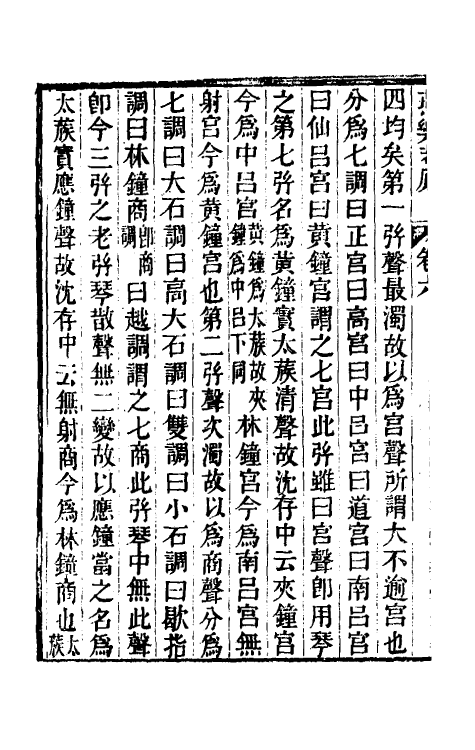 卷六
四均矣第一弦聲最濁故以爲宮聲所謂大不逾宮也
分爲七調曰正宮曰高宮曰中呂宮曰道宮曰南呂宮
曰仙呂宮曰黄鐘宮謂之七宮此弦雖曰宮聲卽用琴
之第七弦名爲黄鐘實太蔟清聲故沈存中云夾鐘宮
今爲中呂宮黄鐘爲太蔟故夾鐘爲中呂下同林鐘宮今爲南呂宮無
射宮今爲黄鐘宮也第二弦聲次濁故以爲商聲分爲
七調曰大石調曰高大石調曰雙調曰小石調曰歇指
調曰林鐘商卽商調曰越調謂之七商此弦琴中無此聲
卽今三弦之老弦琴散聲無二變故以應鐘當之名爲
太蔟實應鐘聲故沈存中云無射商今爲林鐘商也太蔟